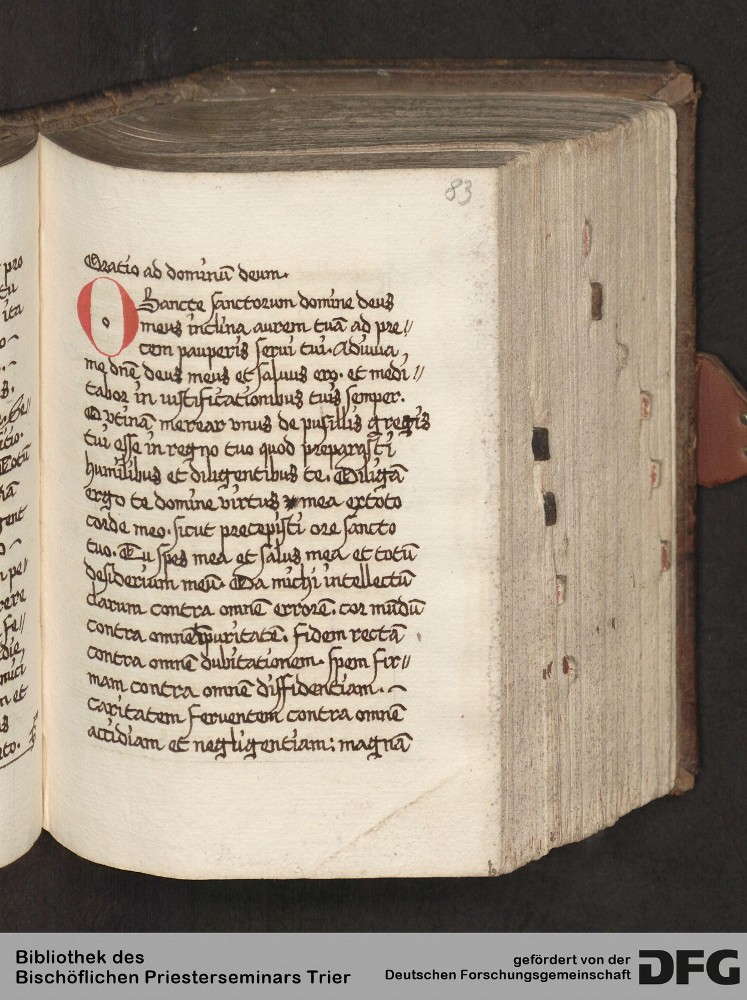 83
Oratio ad dominū deum.
O Sancte sanctorum domine deus
meus inclina aurem tuā ad pre//
cem pauperis serui tui. Adiuua
me dn̄e deus meus et saluus ero. et medi//
tabor in iustificationibus tuis semper.
O vtinā merear vnus de pusillis gregis
tui esse in regno tuo quod preparasti
humilibus et diligentibus te. Diligā
ergo te domine virtus mea ex toto
corde meo. sicut precepisti ore sancto
tuo. Tu spes mea et salus mea et totū
desiderium meū. Da michi intellectū
clarum contra omnē errorē. cor mūdū
contra omnē īpuritatē. fidem rectā
contra omnē dubitationem. spem fir//
mam contra omnē diffidentiam.
caritatem feruentem contra omnē
accidiam et negligentiam; magnā
pro
tu
ita
s.
Totū
gent
pe/
rere
fe//
die
muci
m et
to.
Bibliothek des
Bischöflichen Priesterseminars Trier
gefördert von der
Deutschen Forschungsgemeinschaft
DFG